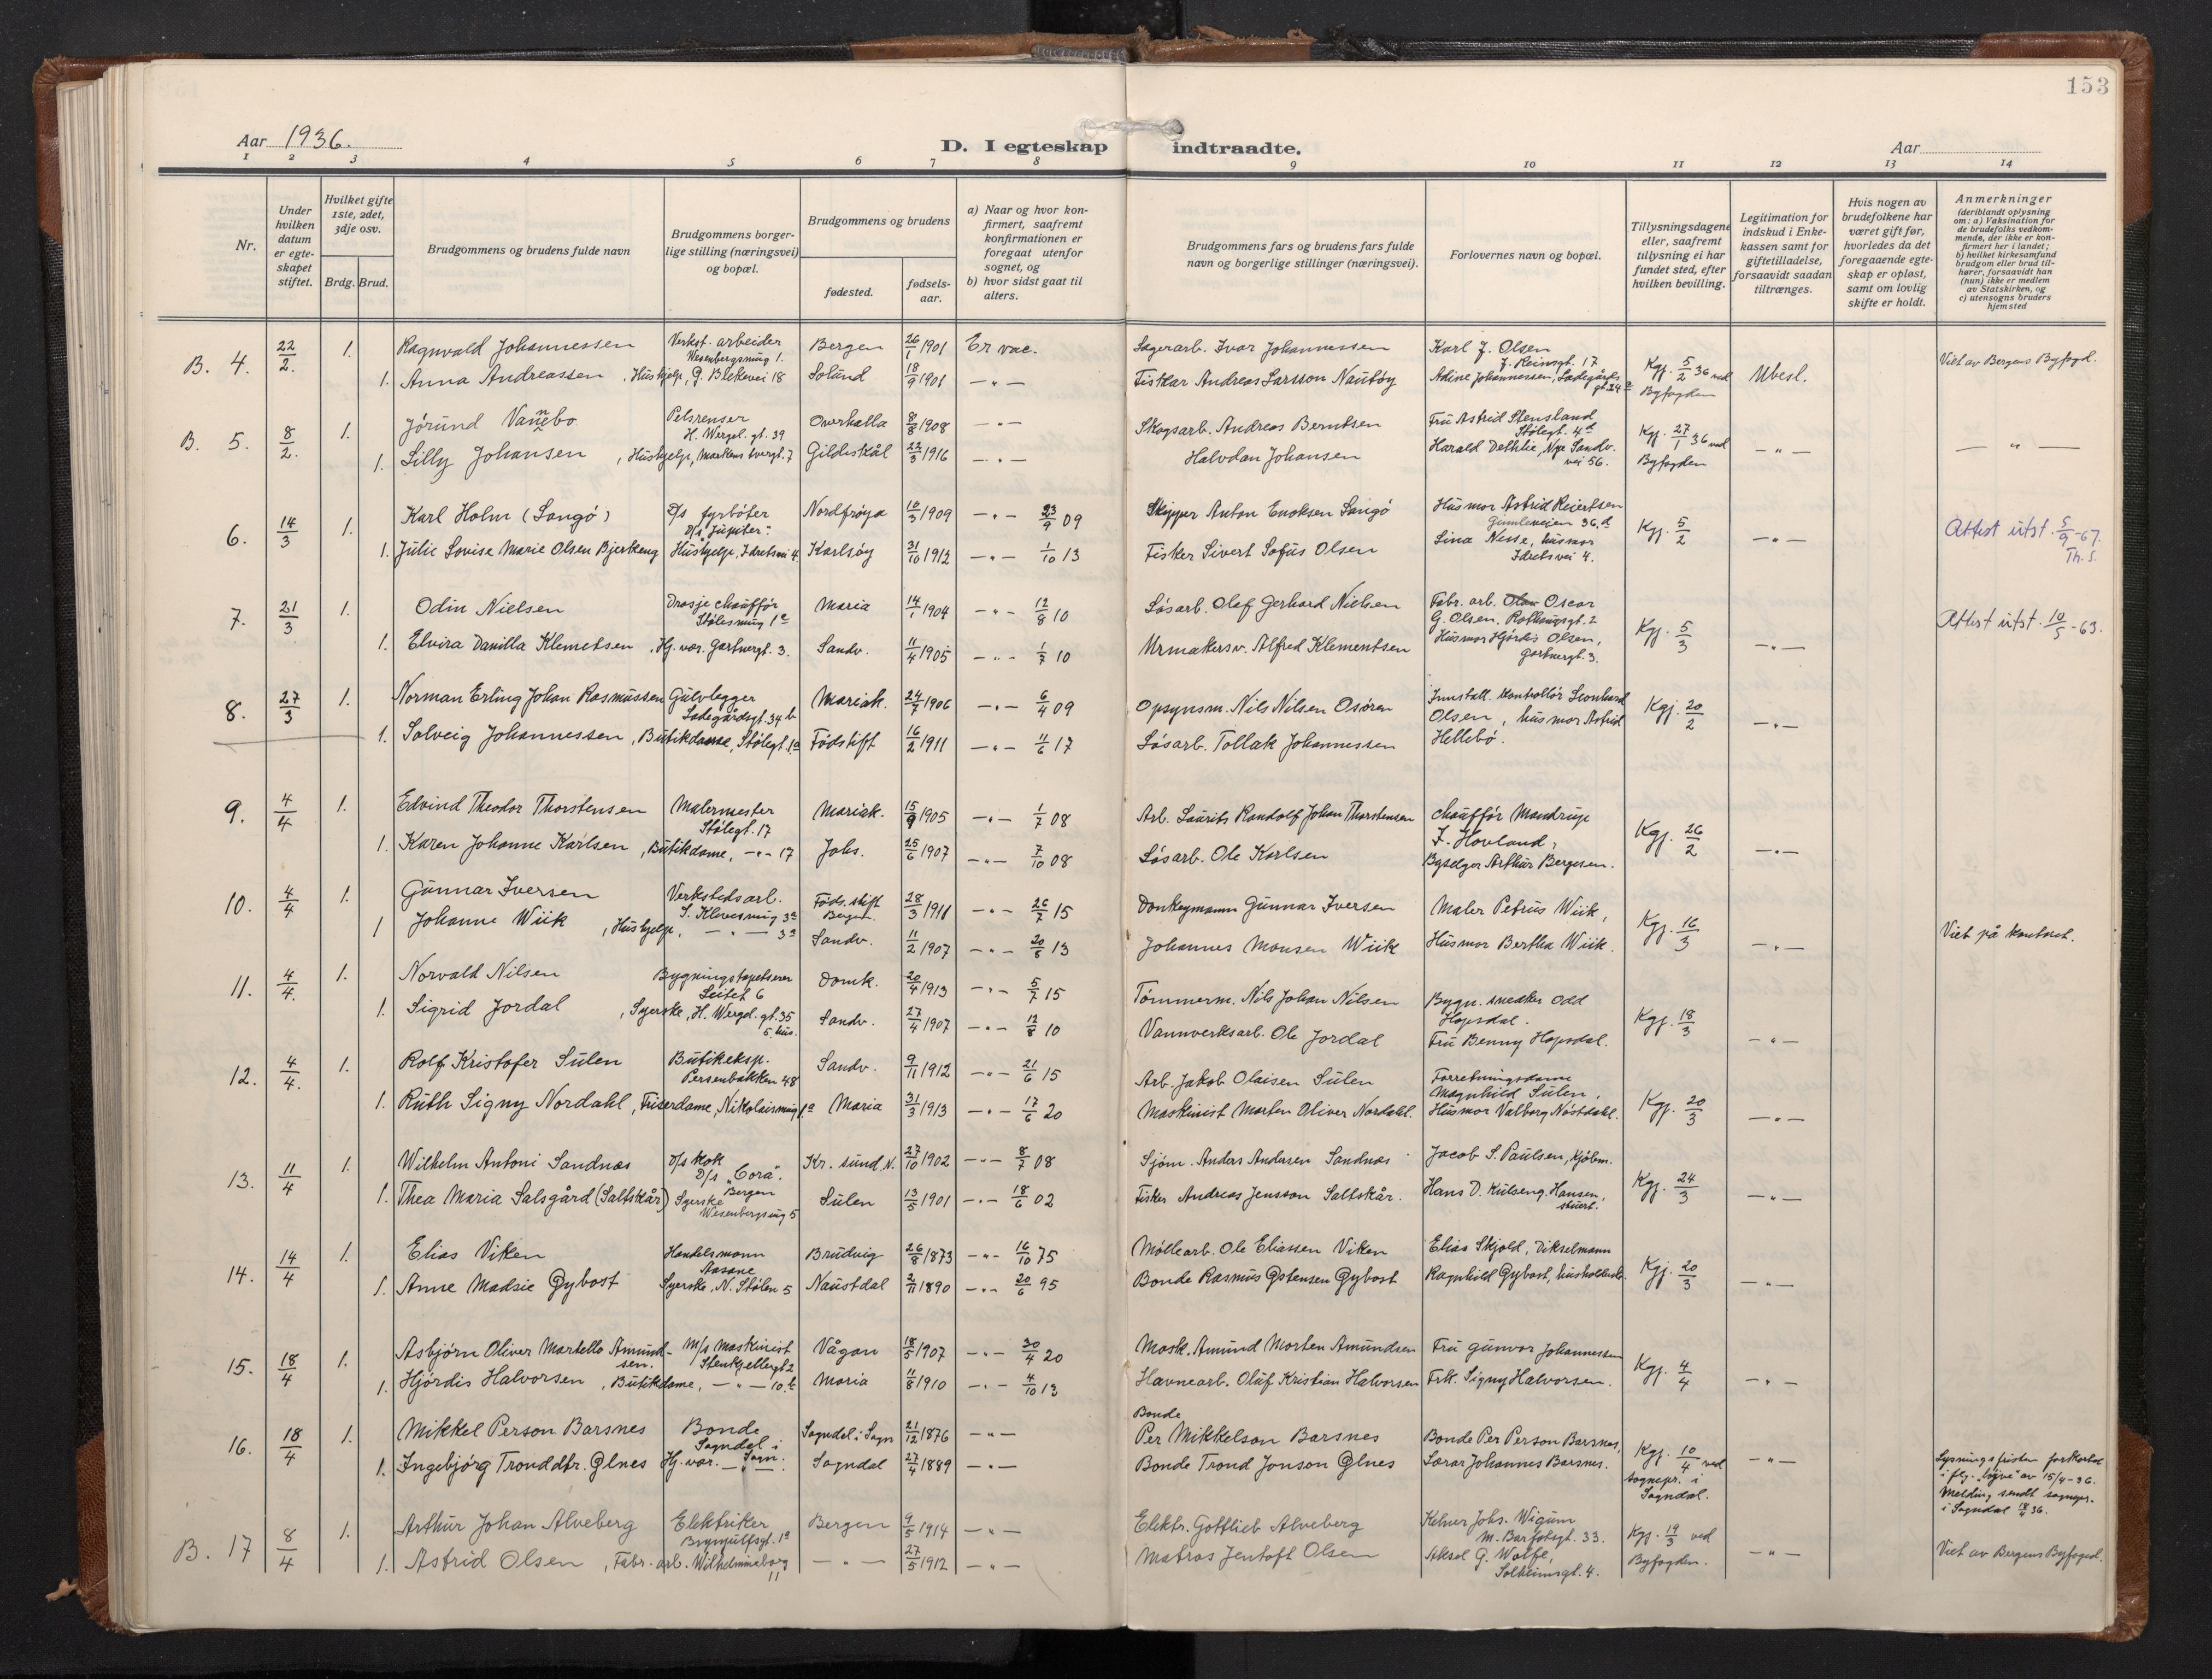 153
Aar 1936.
D. I egteskap indtraadte.
Aar
1 2 3 4 5 6 7 8 9 10 11 12 13 14
Nr.
Under hvilken datum er egteskapet stiftet.
Hvilket gifte 1ste, 2det, 3dje osv.
Brdg. Brud.
Brudgommens og brudens fulde navn
Brudgommens borgerlige stilling (næringsvei) og bopæl.
Brudgommens og brudens
fødested.
fødselsaar.
a) Naar og hvor konfirmert, saafremt konfirmationen er foregaat utenfor sognet, og
b) hvor sidst gaat til alters.
Brudgommens fars og brudens fars fulde navn og borgerlige stillinger (næringsvei).
Forlovernes navn og bopæl.
Tillysningsdagene eller, saafremt tillysning ei har fundet sted, efter hvilken bevilling.
Legitimation for indskud i Enkekassen samt for giftetilladelse, forsaavidt saadan tiltrænges.
Hvis nogen av brudefolkene har været gift før, hvorledes da det foregaaende egteskap er opløst, samt om lovlig skifte er holdt.
Anmerkninger
(deriblandt oplysning om: a) Vaksination for de brudefolks vedkommende, der ikke er konfirmert her i landet; b) hvilket kirkesamfund brudgom eller brud tilhører, forsaavidt han (hun) ikke er medlem av Statskirken, og c) utensogns bruders hjemsted
B. 4. 22/2. 1. Ragnvald Johannessen Verkst. arbeider Wesenbergsmug 1. Bergen 26/1 1901 Er vac. Lagerarb. Ivar Johannessen Karl J. Olsen J. Reinsgt. 17 Kgj. 5/2 36 ved Byfogden Ubesl. Viet av Bergens Byfogd.
1. Anna Andreassen, Hushjelp, G. Blekevei 18 Solund 18/9 1901 -"- Fisker Andreas Larsson Nautøy Adine Johannessen, Ladegårdsgt. 24
B. 5. 8/2. 1. Jørund Vannebo Pelsrenser H. Wergel. gt. 39 Overhalla 8/8 1908 -"- Skogsarb. Andreas Berntsen Fru Astrid Stensland Stølegt. 4d Kgj. 27/1 36 ved Byfogden -"- -"-
1. Lilly Johansen, Hushjelp, Markens tvergt. 7 Gildeskål 22/3 1916 -"- Halvdan Johansen Harald Dethlie, Nye Sandv. vei 56.
6. 14/3 1. Karl Holm (Langø) D/s fyrbøter D/s "Jupiter". Nordfrøya 10/3 1909 -"- 23/9 09 Skipper Anton Enoksen Langø Husmor Astrid Reiertsen Gimleveien 36.d Kgj. 5/2 -"- Attest utst. 5/9-67. Th. S.
1. Julie Lovise Marie Olsen Bjerkeng Hushjelp, Idretsvei 4. Karlsøy 31/10 1912 -"- 1/10 13 Fisker Sivert Sofus Olsen Lina Nesse, husmor Idretsvei 4.
7. 21/3 1. Odin Nielsen Drosje chauffør Stølesmug 1c Maria 14/1 1904 -"- 12/8 10 Løsarb. Olaf Gerhard Nielsen Fabr. arb. Olav Oscar G. Olsen, Rothaugsgt. 2 Kgj. 5/3 -"- Attest utst. 10/5-63.
1. Elvira Danilla Klemetsen, Hj. vær. Gartnergt. 3. Sandv. 11/4 1905 -"- 1/7 10 Urmakersv. Alfred Klementsen Husmor Hjørdis Olsen, Gartnergt. 3.
8. 27/3 1. Norman Erling Johan Rasmussen Gulvlegger Ladegårdsgt. 34 b Mariak. 24/7 1906 -"- 6/4 09 Opsynsm. Nils Nilsen Osøren Innstall. kontrollør Leonhard Olsen, husmor Astrid Hellebø. Kgj. 20/2 -"-
1. Solveig Johannessen, Butikdame, Stølegt. 1a Fødstift 16/2 1911 -"- 11/6 17 Løsarb. Tollak Johannessen
9. 4/4 1. Edvind Theodor Thorstensen Malermester Stølegt. 17 Mariak. 15/9 1905 -"- 1/7 08 Arb. Laurits Randolf Johan Thorstensen Chauffør Mandrup F. Hovland, Byselger Arthur Bergesen. Kgj. 26/2 -"-
1. Karen Johanne Karlsen, Butikdame, -"- 17 Johs. 25/6 1907 -"- 7/10 08 Løsarb. Ole Karlsen
10. 4/4 1. Gunnar Iversen Verkstedsarb. S. Klevesmug 3a Føds.stift Bergen. 28/3 1911 -"- 26/7 15 Donkeymann Gunnar Iversen Maler Petrus Wiik, Kgj. 16/3 -"- Viet på kontoret.
1 Johanne Wiik, Hushjelp, -"- 3a Sandv. 11/2 1907 -"- 20/8 13 Johannes Monsen Wiik Husmor Bertha Wiik.
11. 4/4. 1. Norvald Nilsen Bygningstapetserer Leitet 6 Domk. 20/4 1913 -"- 5/7 15 Tømmerm. Nils Johan Nilsen Bygn. snedker Odd Hopsdal. Kgj. 18/3 -"-
1. Sigrid Jordal, Syerske, H. Wergel. gt. 35 5. hus. Sandv. 27/4 1907 -"- 12/8 10 Vannverksarb. Ole Jordal Fru Benny Hopsdal.
12. 4/4. 1. Rolf Kristofer Sulen Butikeksp. Persenbakken 48 Sandv. 9/11 1912 -"- 21/6 15 Arb. Jakob Olaisen Sulen Forretningsdame Magnhild Sulen, Kgj. 20/3 -"-
1. Ruth Signy Nordahl, Friserdame, Nikolaismug 1a Maria 31/3 1913 -"- 17/6 20 Maskinist Morten Oliver Nordahl. Husmor Valborg Nøstdahl.
13. 11/4 1. Wilhelm Antoni Sandnæs D/s kok D/s "Cora". Bergen Kr. sund N. 27/10 1902 -"- 8/7 08 Sjøm. Anders Andersen Sandnæs Jacob S. Paulsen, kjøbm. Kgj. 24/3 -"-
1. Thea Maria Salsgård (Saltskår) Syerske Wesenbergsmug 5 Sulen 13/5 1901 -"- 18/6 02 Fisker Andreas Jensson Saltskår. Hans D. Kulseng Hansen, stuert.
14. 14/4 1. Elias Viken Handelsmann Aasane Brudvig 26/8 1873 -"- 16/10 75 Møllearb. Ole Eliassen Viken Elias Skjold, Dikselmann Kgj. 20/3 -"-
1. Anne Madsie Gybost Syerske, N. Stølen 5 Naustdal 2/11 1890 -"- 20/6 95 Bonde Rasmus Østensen Gybost Ragnhild Gybost, husholderske.
15. 18/4 1. Asbjørn Oliver Martello Amundsen. M/s maskinist Stenkjellergt 2 Vågan 18/5 1907 -"- 30/4 20 Mask. Amund Morten Amundsen Fru Gunvor Johannessen Kgj. 4/4 -"-
1. Hjørdis Halvorsen, Butikdame, -"- 10.b Maria 11/8 1910 -"- 4/10 13 Havnearb. Oluf Kristian Halvorsen Frk. Signy Halvorsen.
16. 18/4 1. Mikkel Person Barsnes Bonde Sogndal i Sogn. Sogndal i Sogn 21/12 1876 -"- Bonde Per Mikkelson Barsnes Bonde Per Person Barsnes, Kgj. 10/4 ved sognepr. i Sogndal. -"- Lysningsfristen forkortet i flg. "løyve" av 15/4-36. Melding sendt sognepr. i Sogndal 18/4 36.
1. Ingebjørg Tronddtr. Ølnes Hj. vær. -"- Sogndal 27/4 1889 -"- Bonde Trond Jonson Ølnes Lærar Johannes Barsnes.
B. 17 8/4 1. Arthur Johan Alveberg Elektriker Brynjulfsgt. 1a Bergen 9/5 1914 -"- Elektr. Gottlieb Alveberg Kelner Johs. Wigum M. Barfotsgt. 33. Kgj. 19/3 ved Byfogden. -"- Viet av Bergens Byfogd.
1. Astrid Olsen, Fabr. arb. Wilhelmineborg 11 -"- 27/5 1912 -"- Matros Jentoft Olsen Aksel G. Wolfe, Solheimsgt. 4.